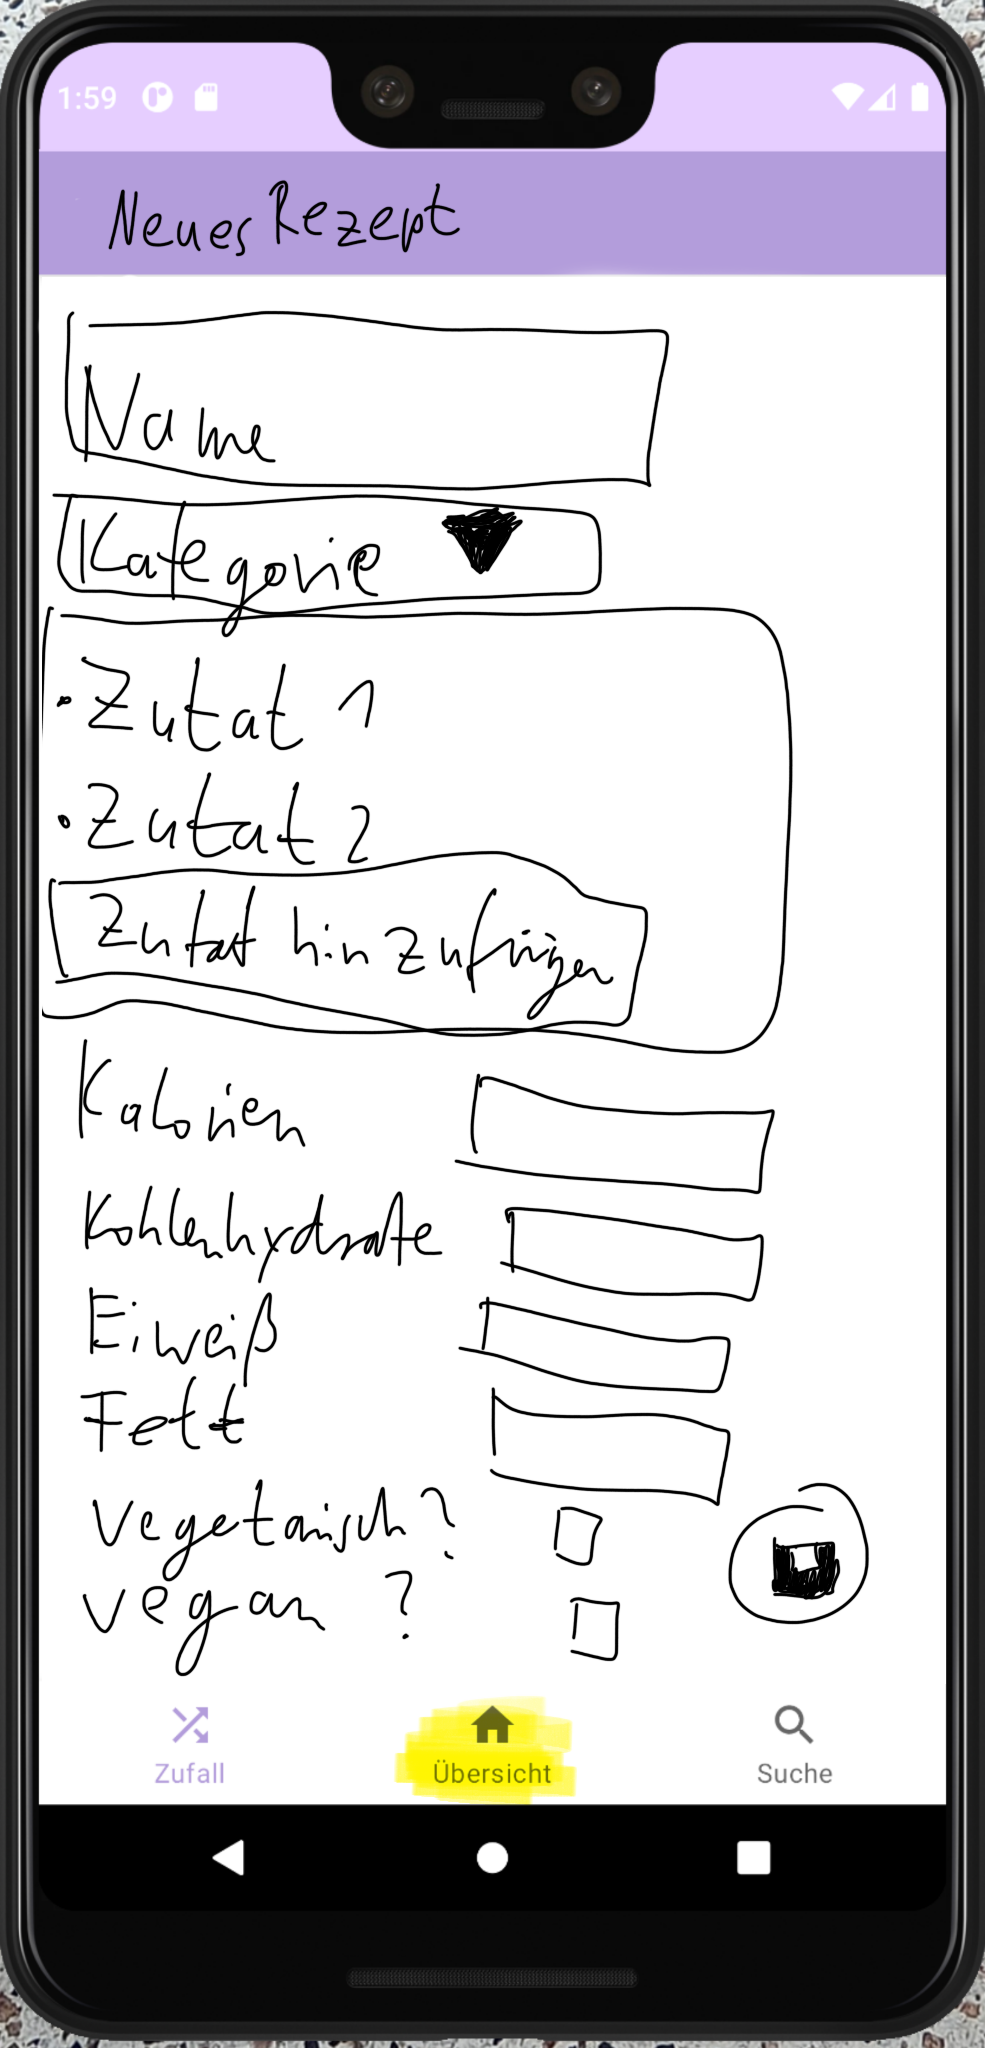 1:59
Neues Rezept
Name
Kategorie
• Zutat 1
• Zutat 2
Zutat hinzufügen
Kalorien
Kohlenhydrate
Eiweiß
Fett
Vegetarisch?
vegan?
Zufall
Übersicht
Suche